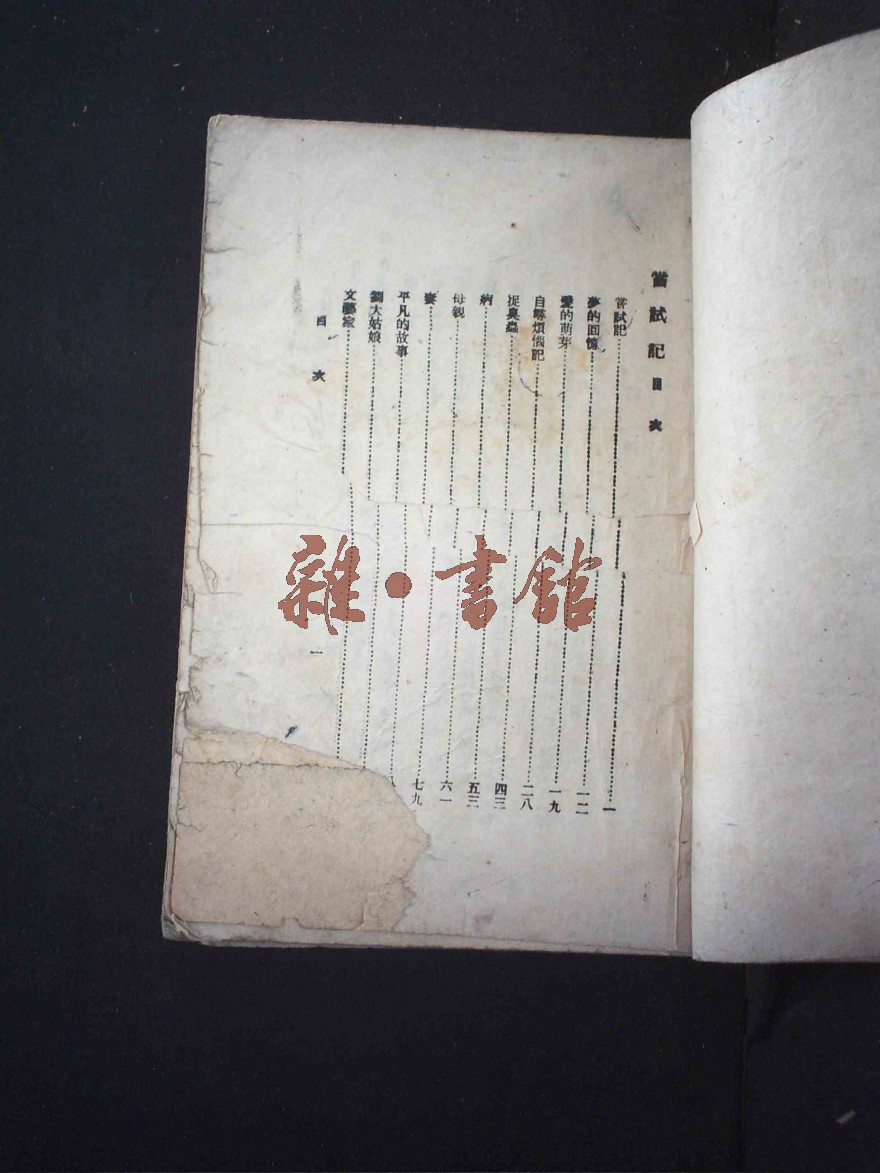 嘗試記目次
嘗試記 一
夢的回憶 一二
愛的萌芽 一九
自尋煩惱記 二八
捉臭蟲 四三
病 五三
母親 六一
妻 七九
平凡的故事
劉大姑娘
文藝家
目次 一
雜·書館